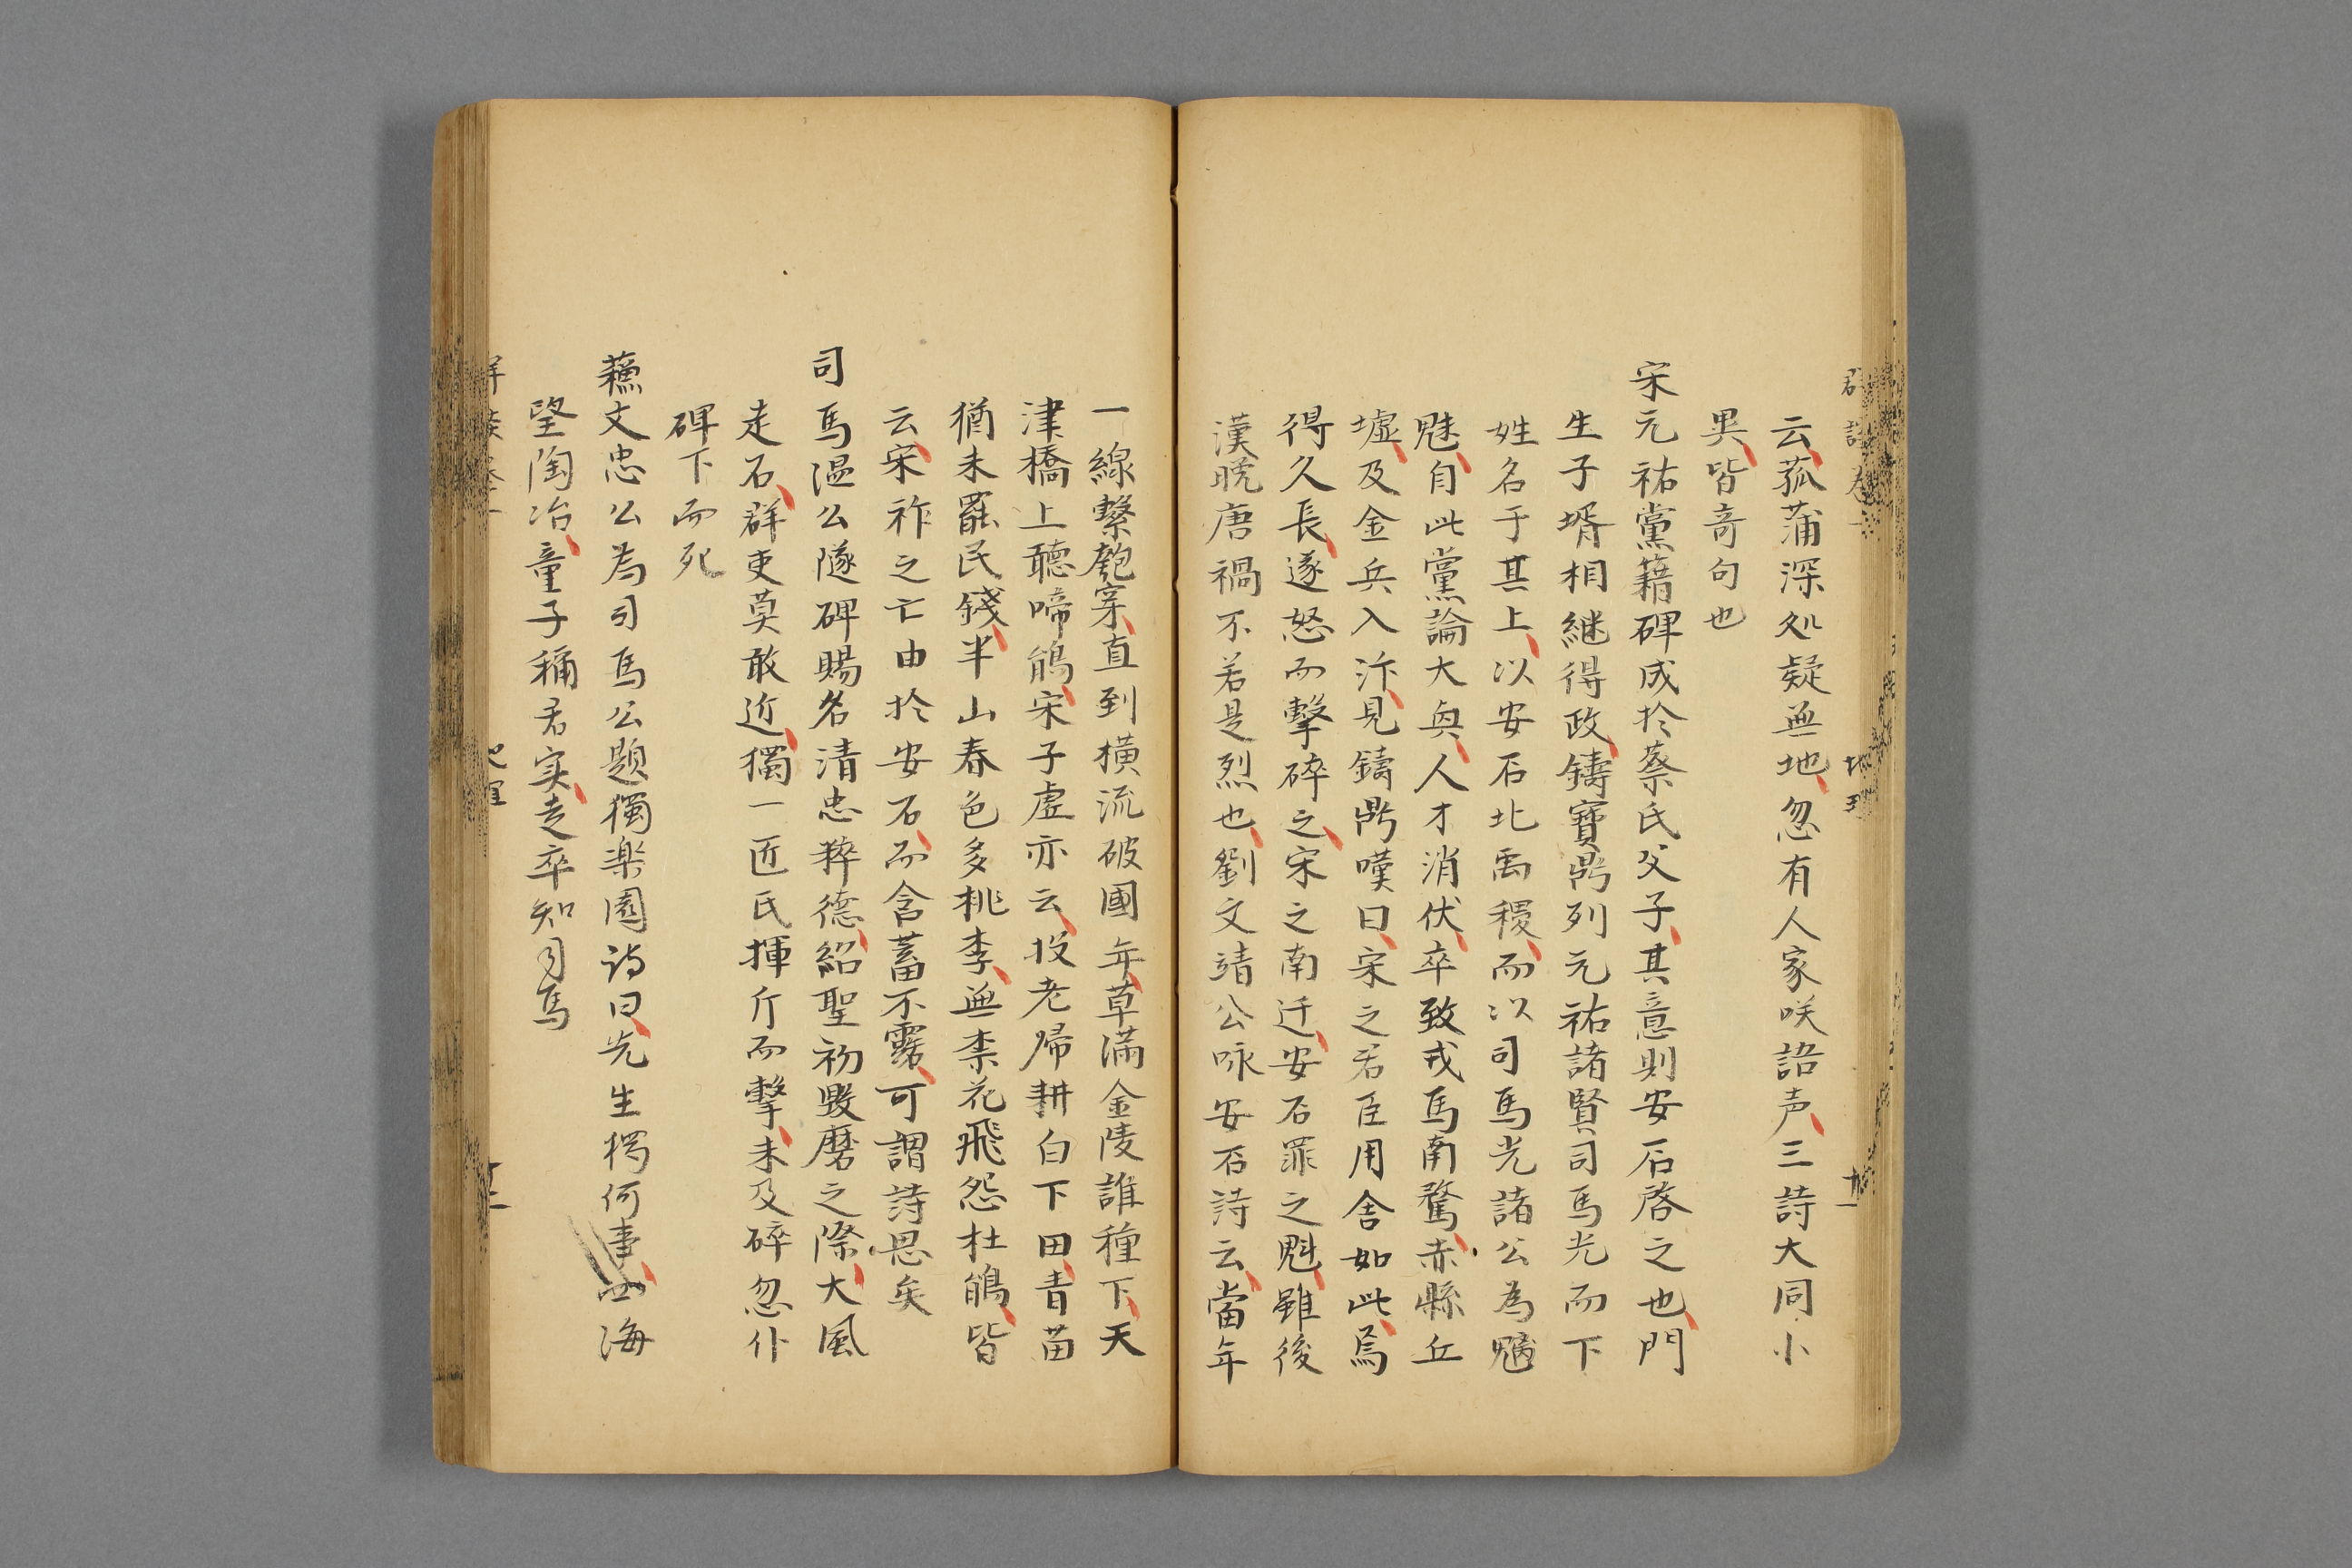 云菰蒲深処疑無地忽有人家咲語声三詩大同小
異皆竒句也
宋元祐黨籍碑成於蔡氏父子其意則安石啓之也門
生子壻相継得政鑄寶鼎列元祐諸賢司馬光而下
姓名于其上以安石比禹稷而以司馬光諸公為魑
魅自此黨論大興人才消伏卒致戎馬南騖赤縣丘
墟及金兵入汴見鑄鼎嘆曰宋之君臣用舎如此焉
得久長遂怒而擊碎之宋之南迁安石罪之魁雖後
漢晚唐禍不若是烈也劉文靖公咏安石詩云當年
一線繫匏穿直到橫流破國年草滿金陵誰種下天
津橋上聽啼鵑宋子虛亦云投老歸耕白下田青苗
猶未罷民錢半山春色多桃李無柰花飛怨杜鵑皆
云宋祚之亡由於安石而含蓄不露可謂詩思矣
司馬温公隧碑賜名清忠粹德紹聖初毀磨之際大風
走石群吏莫敢近獨一匠氏揮斤而擊未及碎忽仆
碑下而死
蘓文忠公為司馬公題獨楽園詩曰先生獨何事四海
望陶冶童子稱君実走卒知司馬